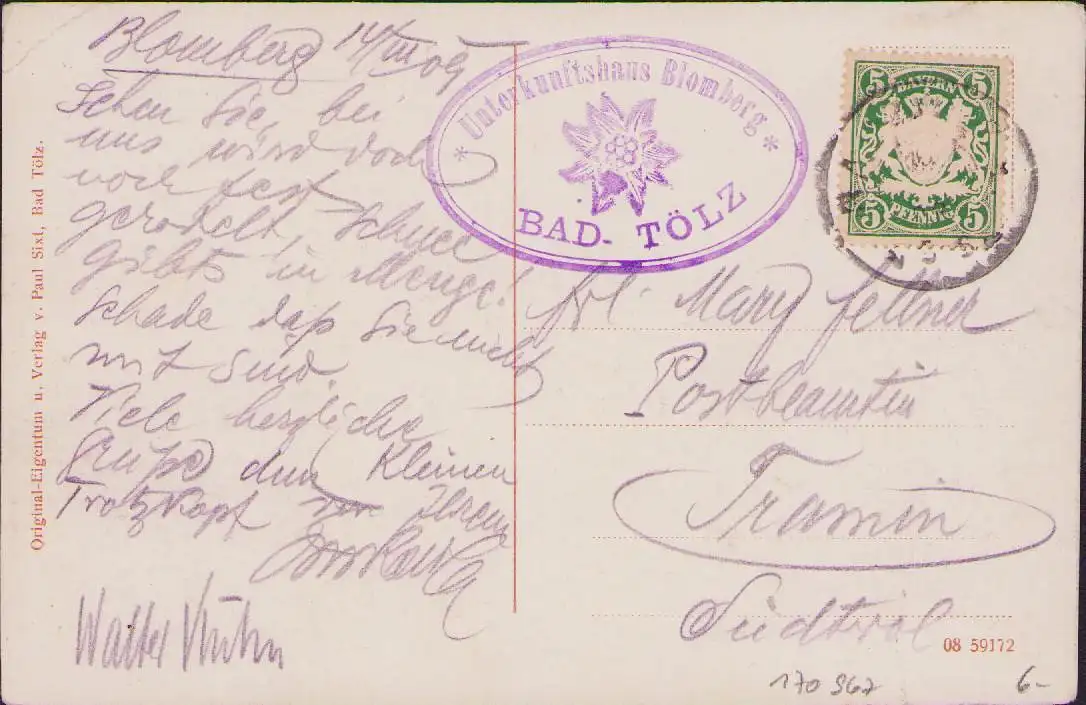 Blomberg 14/III 09
Sehen Sie, bei
uns wird doch
noch fest
gerodelt, Schnee
giebts in Menge!
Schade daß Sie nicht
mit sind.
Viele herzliche
Grüße dem Kleinen
Trotzkopf von Ihrem
Walter Kuhn
Original-Eigentum u. Verlag v. Paul Sixl, Bad Tölz.
* Unterkunftshaus Blomberg *
BAD-TÖLZ
5 BAYERN 5
5 PFENNIG 5
Frl. Mary Fellner
Postbeamtin
Tramin
Südtirol
08 59172
170 967
6-